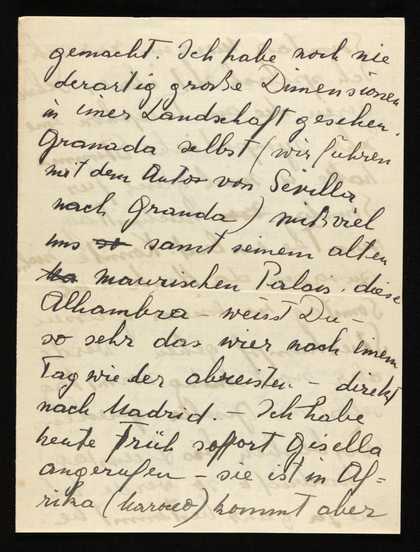 gemacht. Ich habe noch nie
derartig große Dimensionen
in einer Landschaft gesehen.
Granada selbst (wir fuhren
mit dem Autos von Sevilla
nach Granda) mißviel
uns samt seinem alten
maurischen Palais, diese
Alhambra – weisst Du –
so sehr das wier nach einem
Tag wieder abreisten – direkt
nach Madrid. – Ich habe
heute Früh soffort Gisella
angerufen – sie ist in Af=
rika (Maroco) kommt aber